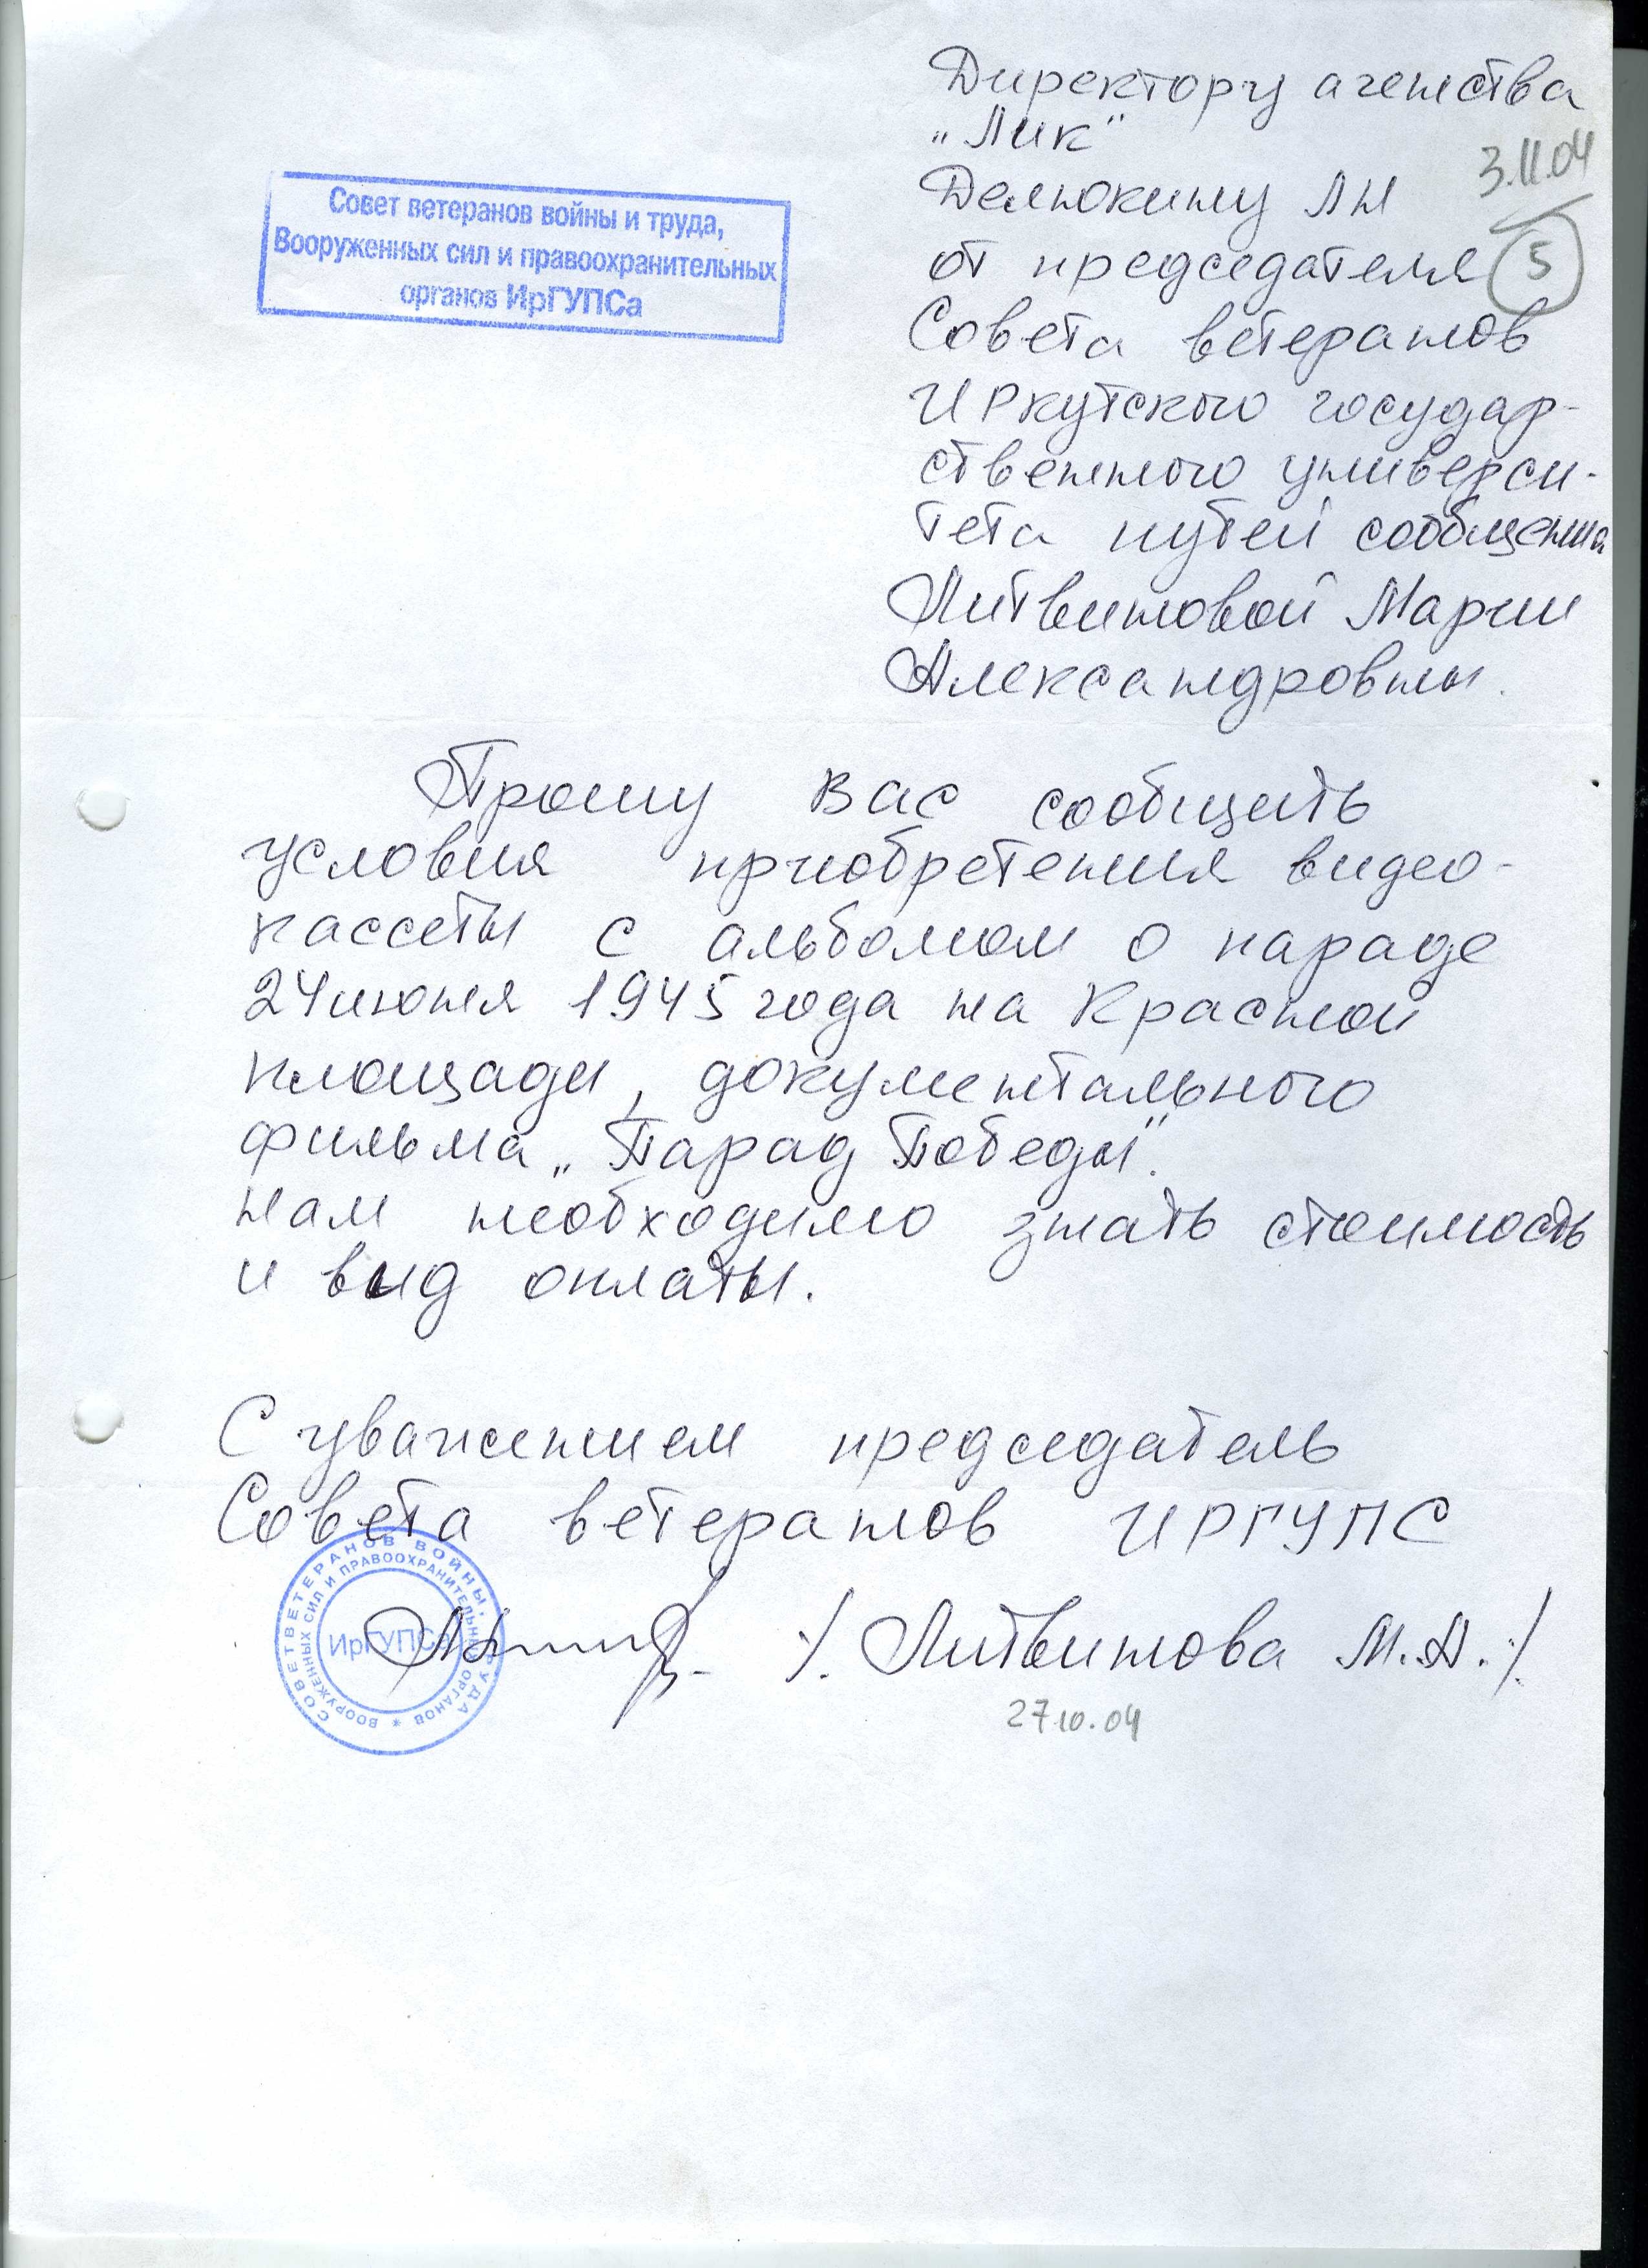 Директору агенства
„Лик"
3.11.04
Делюкину ЛН
5
от председателя
Совета ветеранов
Иркутского государ-
ственного универси-
тета путей сообщения
Литвиновой Марии
Александровны.
Совет ветеранов войны и труда,
Вооруженных сил и правоохранительных
органов ИрГУПСа
Прошу Вас сообщить
условия приобретения видео-
кассеты с альбомом о параде
24 июня 1945 года на Красной
площади, документального
фильма „Парад Победы".
Нам необходимо знать стоимость
и вид оплаты.
С уважением председатель
Совета ветеранов ИРГУПС
/. Литвинова М.А./.
27.10.04
СОВЕТ ВЕТЕРАНОВ ВОЙНЫ, ТРУДА
ВООРУЖЕННЫХ СИЛ И ПРАВООХРАНИТЕЛЬНЫХ ОРГАНОВ *
ИрГУПСа